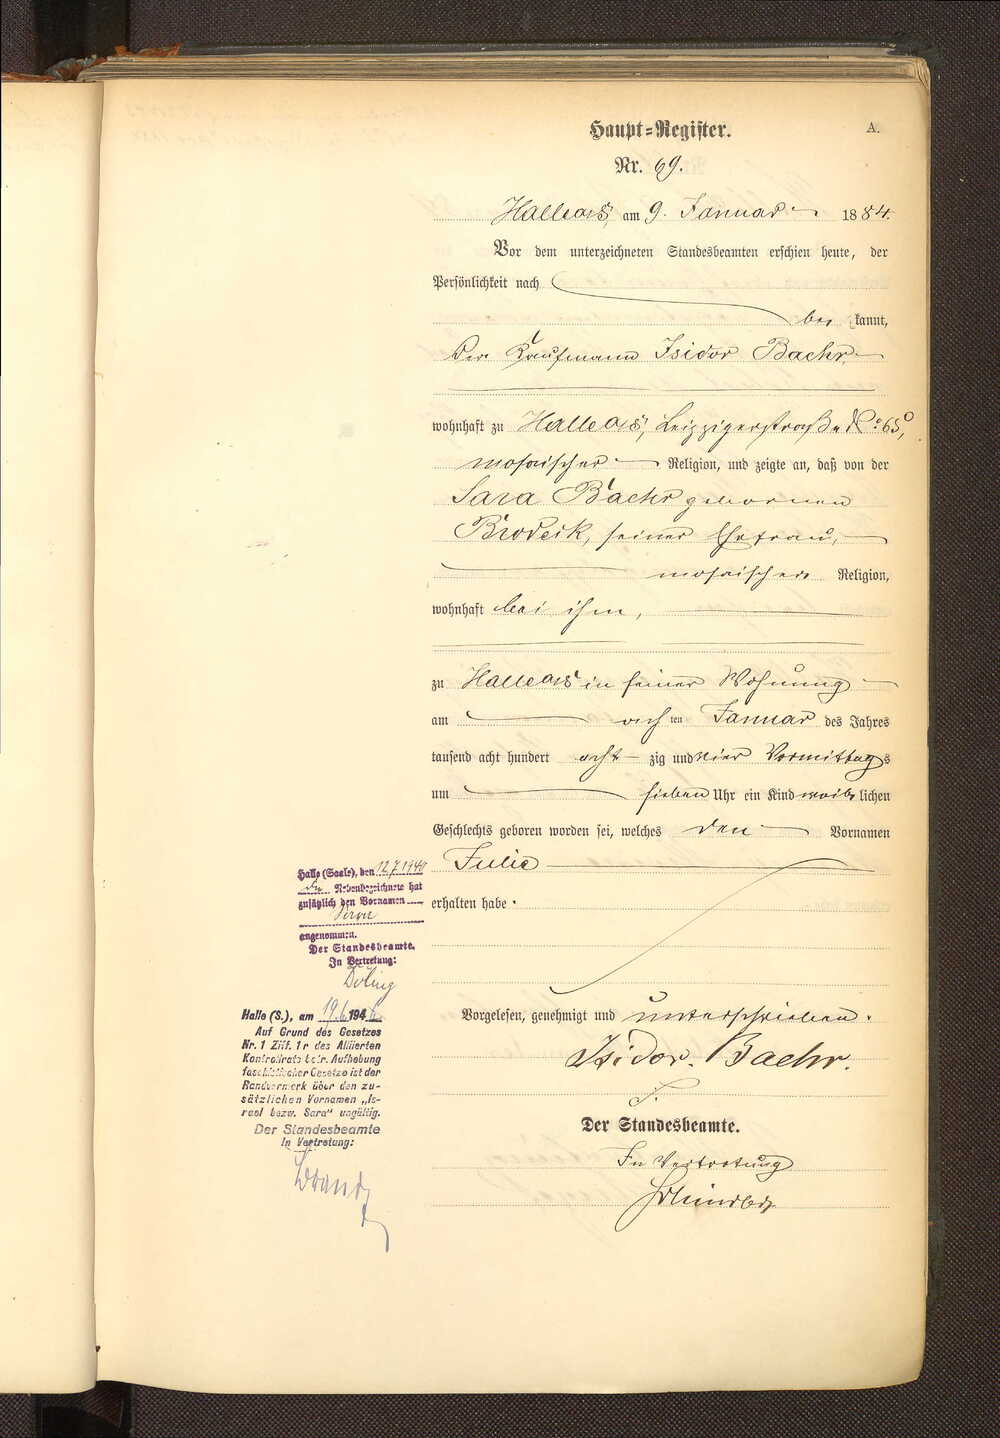 Haupt-Register.
A.
Nr. 69.
Halle a/S, am 9. Januar 1884.
Vor dem unterzeichneten Standesbeamten erschien heute, der
Persönlichkeit nach
be kannt,
der Kaufmann Isidor Baehr
wohnhaft zu Halle a/S, Leipzigerstraße No 65,
mosaischer Religion, und zeigte an, daß von der
Sara Baehr geborenen
Brodeck, seiner Ehefrau,
mosaischer Religion,
wohnhaft bei ihm,
zu Halle a/S in seiner Wohnung
am acht ten Januar des Jahres
tausend acht hundert acht zig und vier Vormittag s
um sieben Uhr ein Kind weib lichen
Geschlechts geboren worden sei, welches den Vornamen
Julie
erhalten habe.
Vorgelesen, genehmigt und unterschrieben.
Isidor Baehr.
Der Standesbeamte.
In Vertretung
Halle (Saale), den 12.7.1940
Die Nebenbezeichnete hat
zusätzlich den Vornamen
Sara
angenommen.
Der Standesbeamte.
In Vertretung:
Halle (S.), am 19.6.1946
Auf Grund des Gesetzes
Nr. 1 Ziff. 1 r des Alliierten
Kontrollrats betr. Aufhebung
faschistischer Gesetze ist der
Randvermerk über den zu-
sätzlichen Vornamen „Is-
rael bezw. Sara" ungültig.
Der Standesbeamte
In Vertretung: